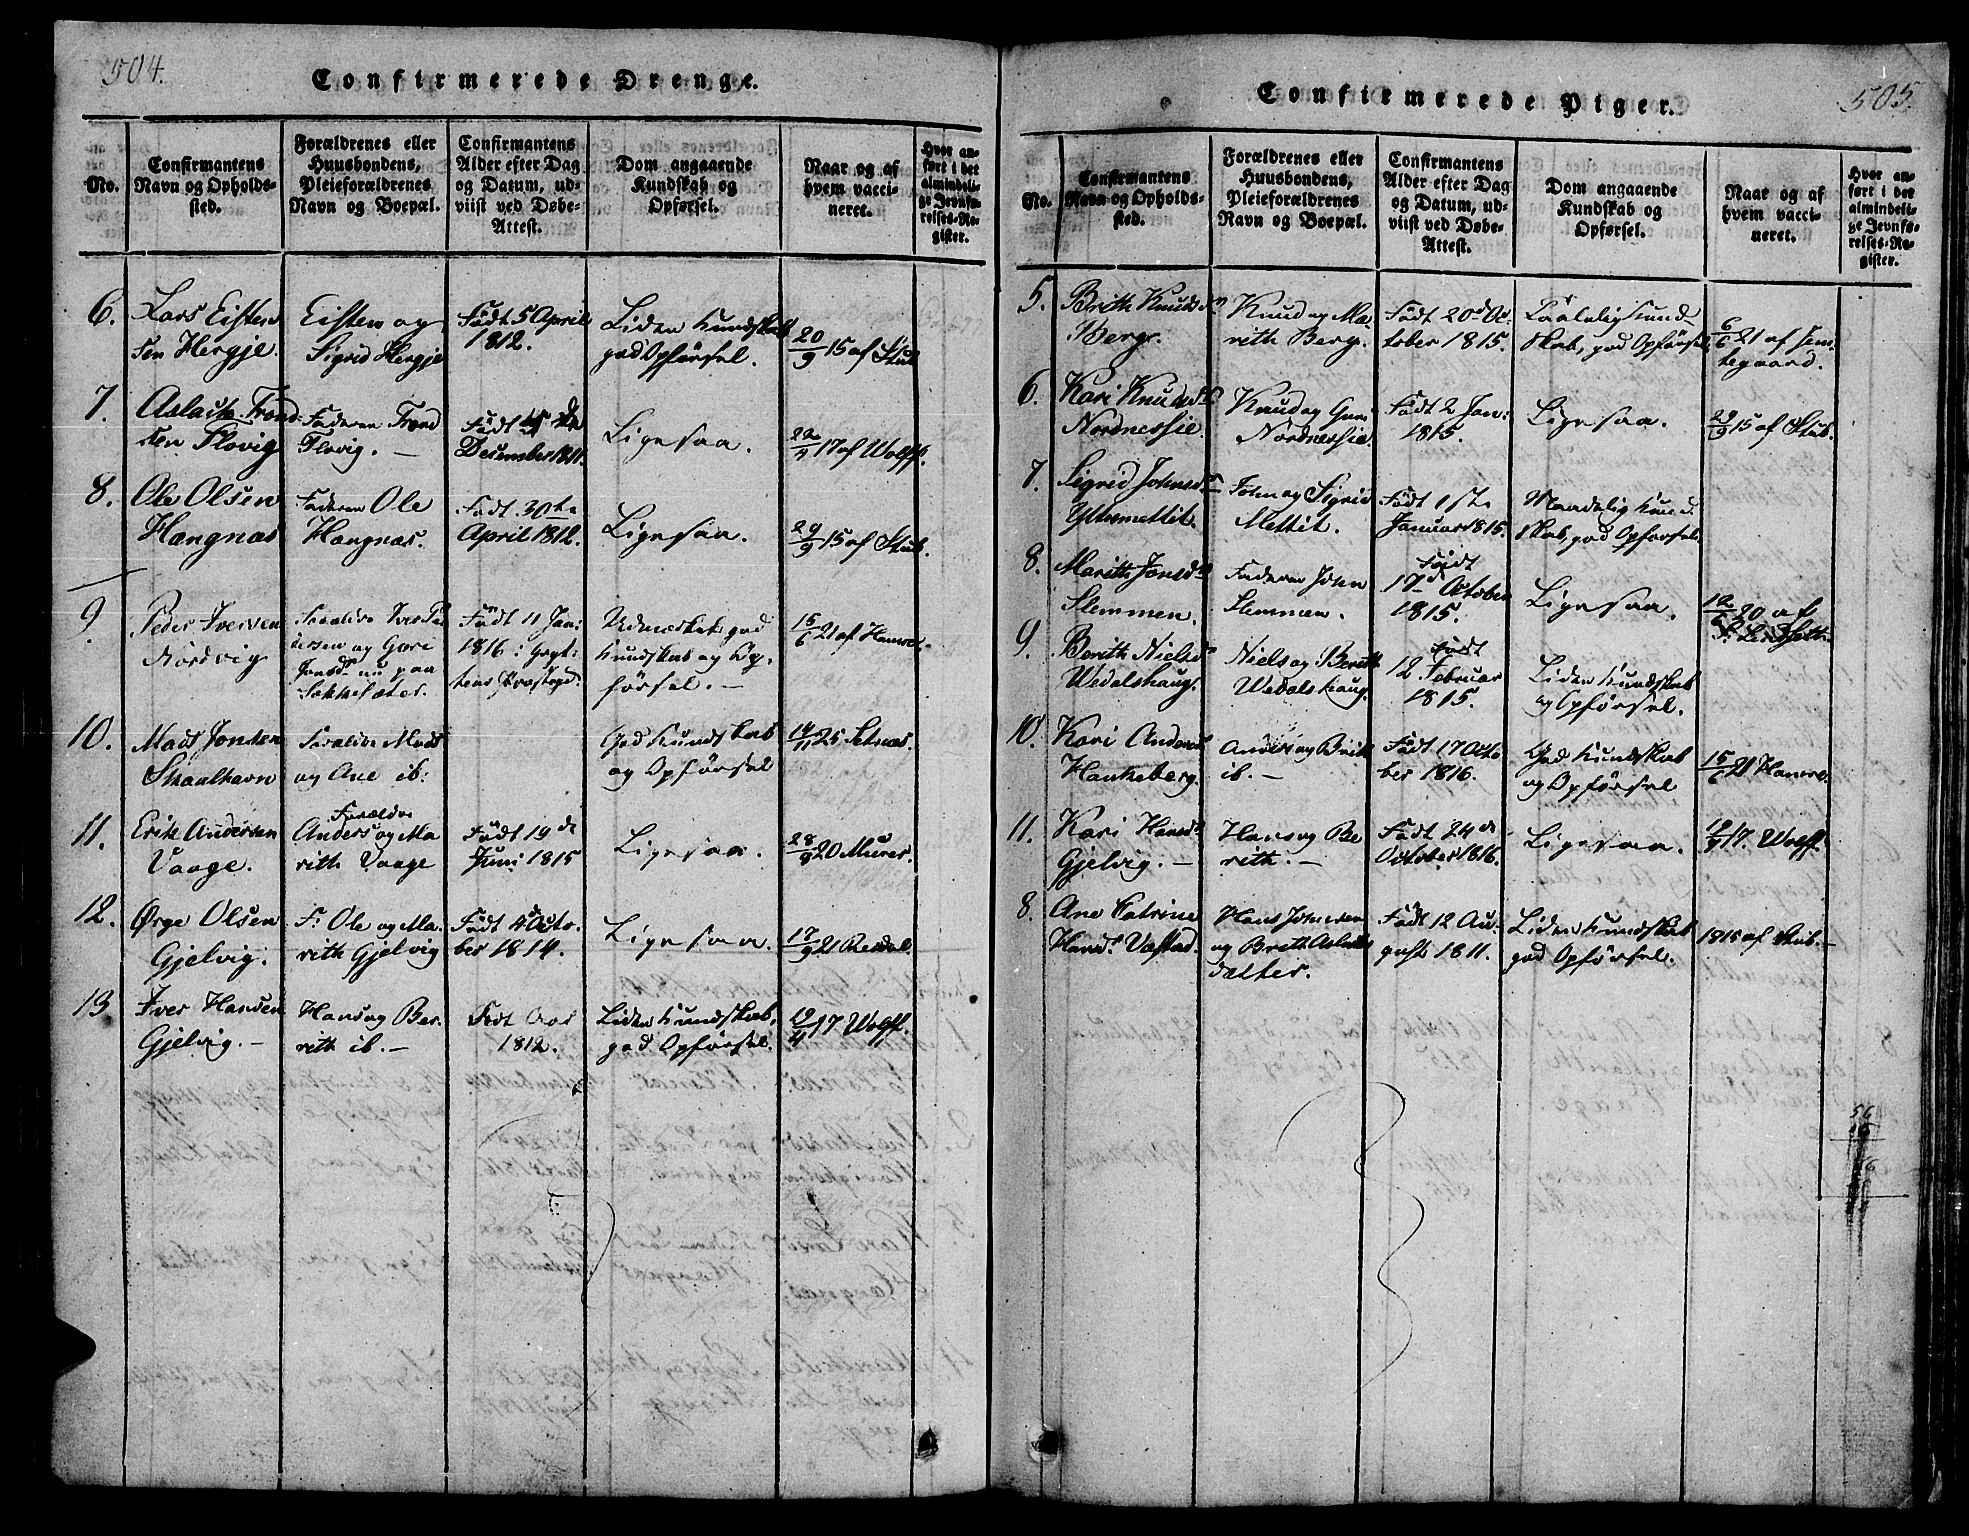 504.
Confirmerede Drenge.
No.
Confirmantens
Navn og Opholds-
sted.
Forældrenes eller
Huusbondens,
Pleieforældrenes
Navn og Boepæl.
Confirmantens
Alder efter Dag
og Datum, ud-
viist ved Døbe-
Attest.
Dom angaaende
Kundskab og
Opførsel.
Naar og af
hvem vacci-
neret.
Hvor an-
ført i det
almindeli-
ge Jevnfø-
relses-Re-
gister.
6.
Lars Eisten
sen Hergje.
Eisten og
Sigrid Hergje
Født 5 April
1812.
Liden Kundskab
god Opførsel.
20/9 15 af Stub
7.
Aslack Trond
sen Flovig
Faderen Trond
Flovig. —
Født
December 1811.
Ligesaa.
22/4 17 af Wolff.
8.
Ole Olsen
Hangnæs
Faderen Ole
Hangnæs.
Født 30te
April 1812.
Ligesaa.
29/9 15 af Stub.
9
Peder Iversen
Nordvig
Forældre Iver Pe
dersen og Gori
Jonsd. nu paa
Sekkesæter.
Født 11 Jan:
1816:
Udmærket god
Kundskab og Op-
førsel. —
15/6 21 af Hamre.
10.
Mads Jonsen
Skaalhavn
Forældre Mads
og Ane ib:
God Kundskab
og Opførsel
14/11 25 Setnæs.
11.
Erik Andersen
Vaage.
Forældre
Anders og Ma
rith Vaage
Født 19de
Juni 1815
Ligesaa.
28/9 20 Murer.
12.
Ørge Olsen
Gjelvig.
F: Ole og Ma
rith Gjelvig
Født 4d Octo-
ber 1814.
Ligesaa.
17/9 21
13
Iver Hansen
Gjelvig. —
Hans og Be-
rith ib. —
Født Aar
1812.
Liden Kundskab,
god Opførsel.
19/4 17 Wolff.
505.
Confirmerede Piger.
No.
Confirmantens
Navn og Opholds-
sted.
Forældrenes eller
Huusbondens,
Pleieforældrenes
Navn og Boepæl.
Confirmantens
Alder efter Dag
og Datum, ud-
viist ved Døbe-
Attest.
Dom angaaende
Kundskab og
Opførsel.
Naar og af
hvem vacci-
neret.
Hvor an-
ført i det
almindeli-
ge Jevnfø-
relses-Re-
gister.
5.
Brith Knudsdn
Berg.
Knud og Ma-
rith Berg.
Født 20de Oc-
tober 1815.
Taalelig Kund-
skab, god Opførsel
6/6 21 af
6.
Kari Knudsdn
Nordnessie.
Knud og Guri
Nordnessie.
Født 2 Jan:
1815.
Ligesaa.
29/9 15 af Stub.
7.
Sigrid Johnsdn
Yttremettit.
John og Sigrid
Mettit.
Født 1ste
Januar 1815.
Maadelig Kund-
skab, god Opførsel.
8.
Marith Jonsdn
Slemmen.
Faderen John
Slemmen.
Født
17d October
1815.
Ligesaa.
20 af
9.
Berith Nielsdn
Wedalshaug.
Niels og Berith
Wedalshaug.
Født
12 Februar
1815.
Liden Kundskab
og Opførsel.
10.
Kari Andersd
Hankeberg.
Anders og Brith
ib. —
Født 17 Octo
ber 1816.
God Kundskab
og Opførsel
15/6 21 Hamre.
11.
Kari Hansdn
Gjelvig. —
Hans og Be
rith. —
Født 24de
October 1816.
Ligesaa.
19/4 17. Wolff.
8.
Ane Catrine
Hansd. Vastad.
Hans Johnsen
og Brith Aslaks
datter.
Født 12 Au-
gust 1811.
Liden Kundskab
god Opførsel.
1815 af Stub. —
56